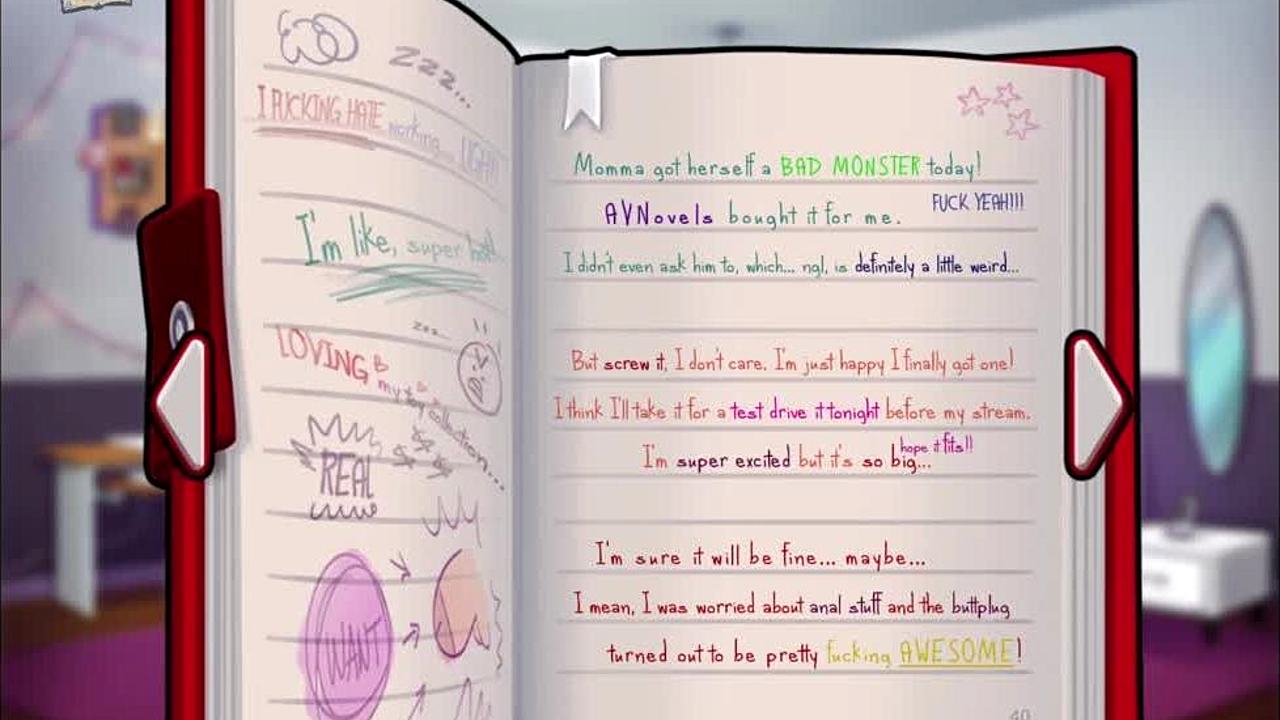 zzz...
I FUCKING HATE working... UGH!!
I'm like, super hot!
zzz...
LOVING
my toy collection...
REAL
WANT
Momma got herself a BAD MONSTER today!
FUCK YEAH!!!
AVNovels bought it for me.
I didn't even ask him to, which... ngl, is definitely a little weird...
But screw it, I don't care. I'm just happy I finally got one!
I think I'll take it for a test drive it tonight before my stream.
hope it fits!!
I'm super excited but it's so big...
I'm sure it will be fine... maybe...
I mean, I was worried about anal stuff and the buttplug
turned out to be pretty fucking AWESOME!
40